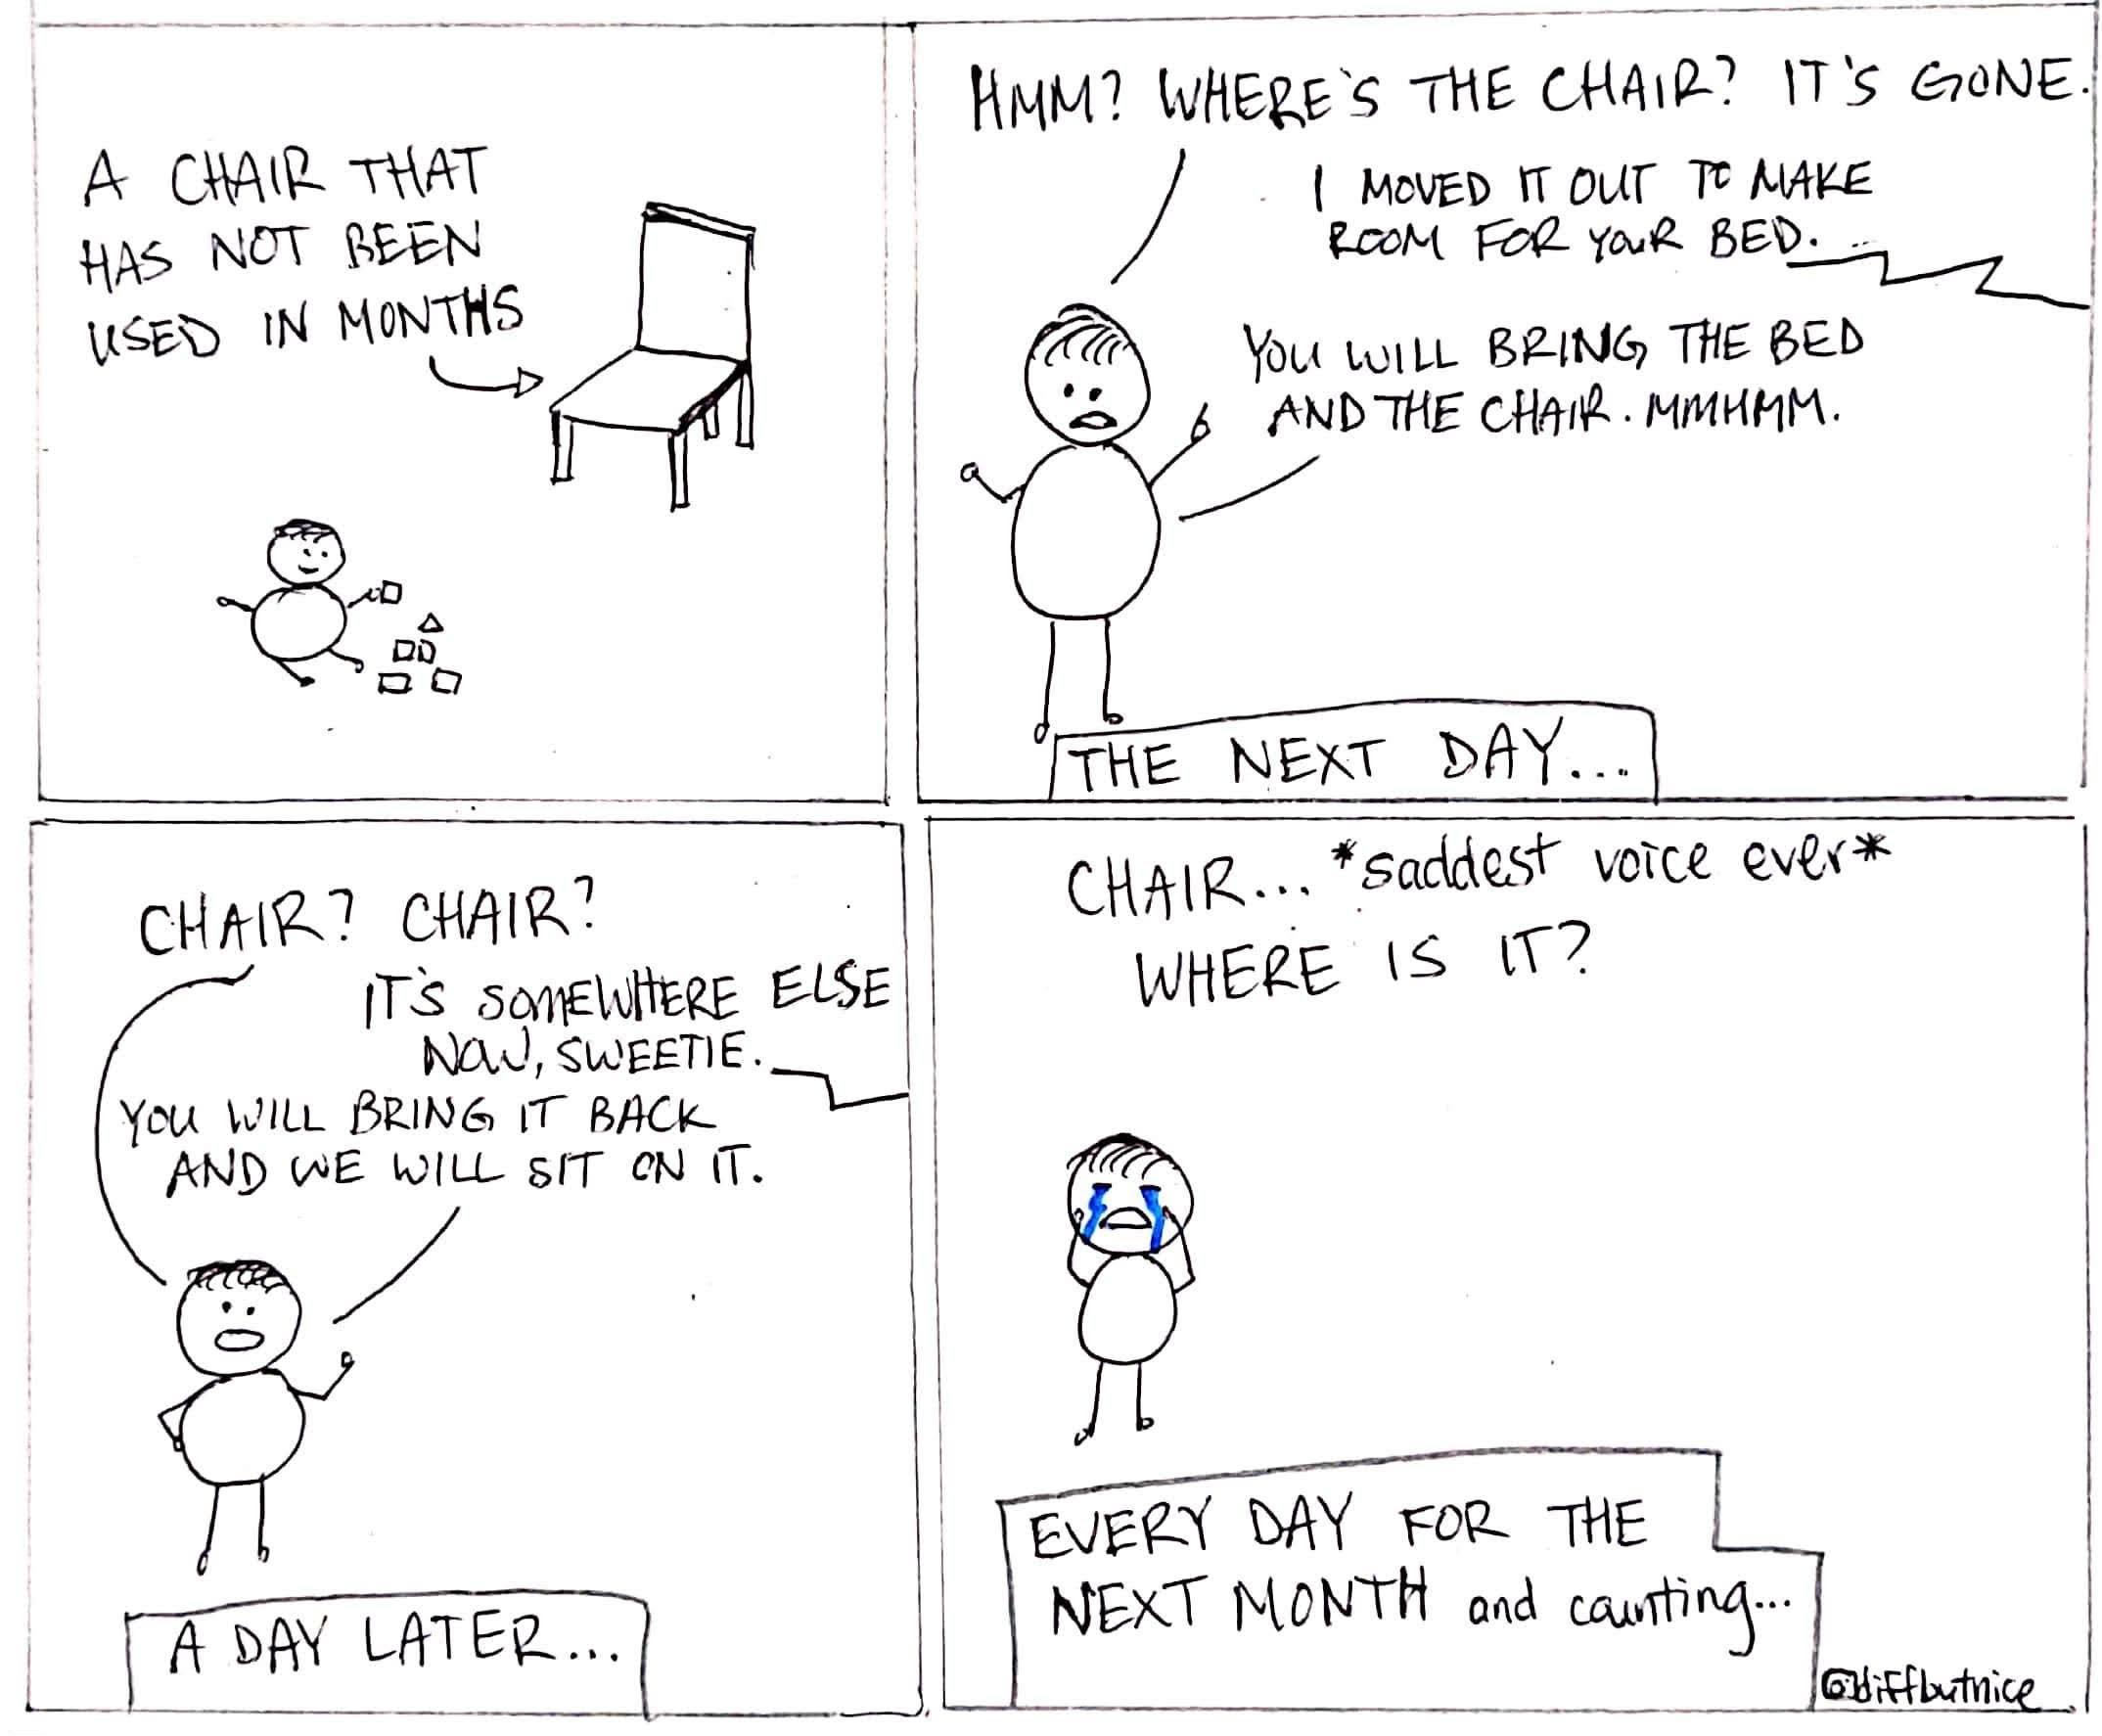 A CHAIR THAT
HAS NOT BEEN
USED IN MONTHS
HMM? WHERE'S THE CHAIR? IT'S GONE.
I MOVED IT OUT TO MAKE
ROOM FOR YOUR BED.
YOU WILL BRING THE BED
AND THE CHAIR. MMHMM.
THE NEXT DAY...
CHAIR? CHAIR?
IT'S SOMEWHERE ELSE
NOW, SWEETIE.
YOU WILL BRING IT BACK
AND WE WILL SIT ON IT.
A DAY LATER...
CHAIR... *saddest voice ever*
WHERE IS IT?
EVERY DAY FOR THE
NEXT MONTH and counting...
@diffbutnice